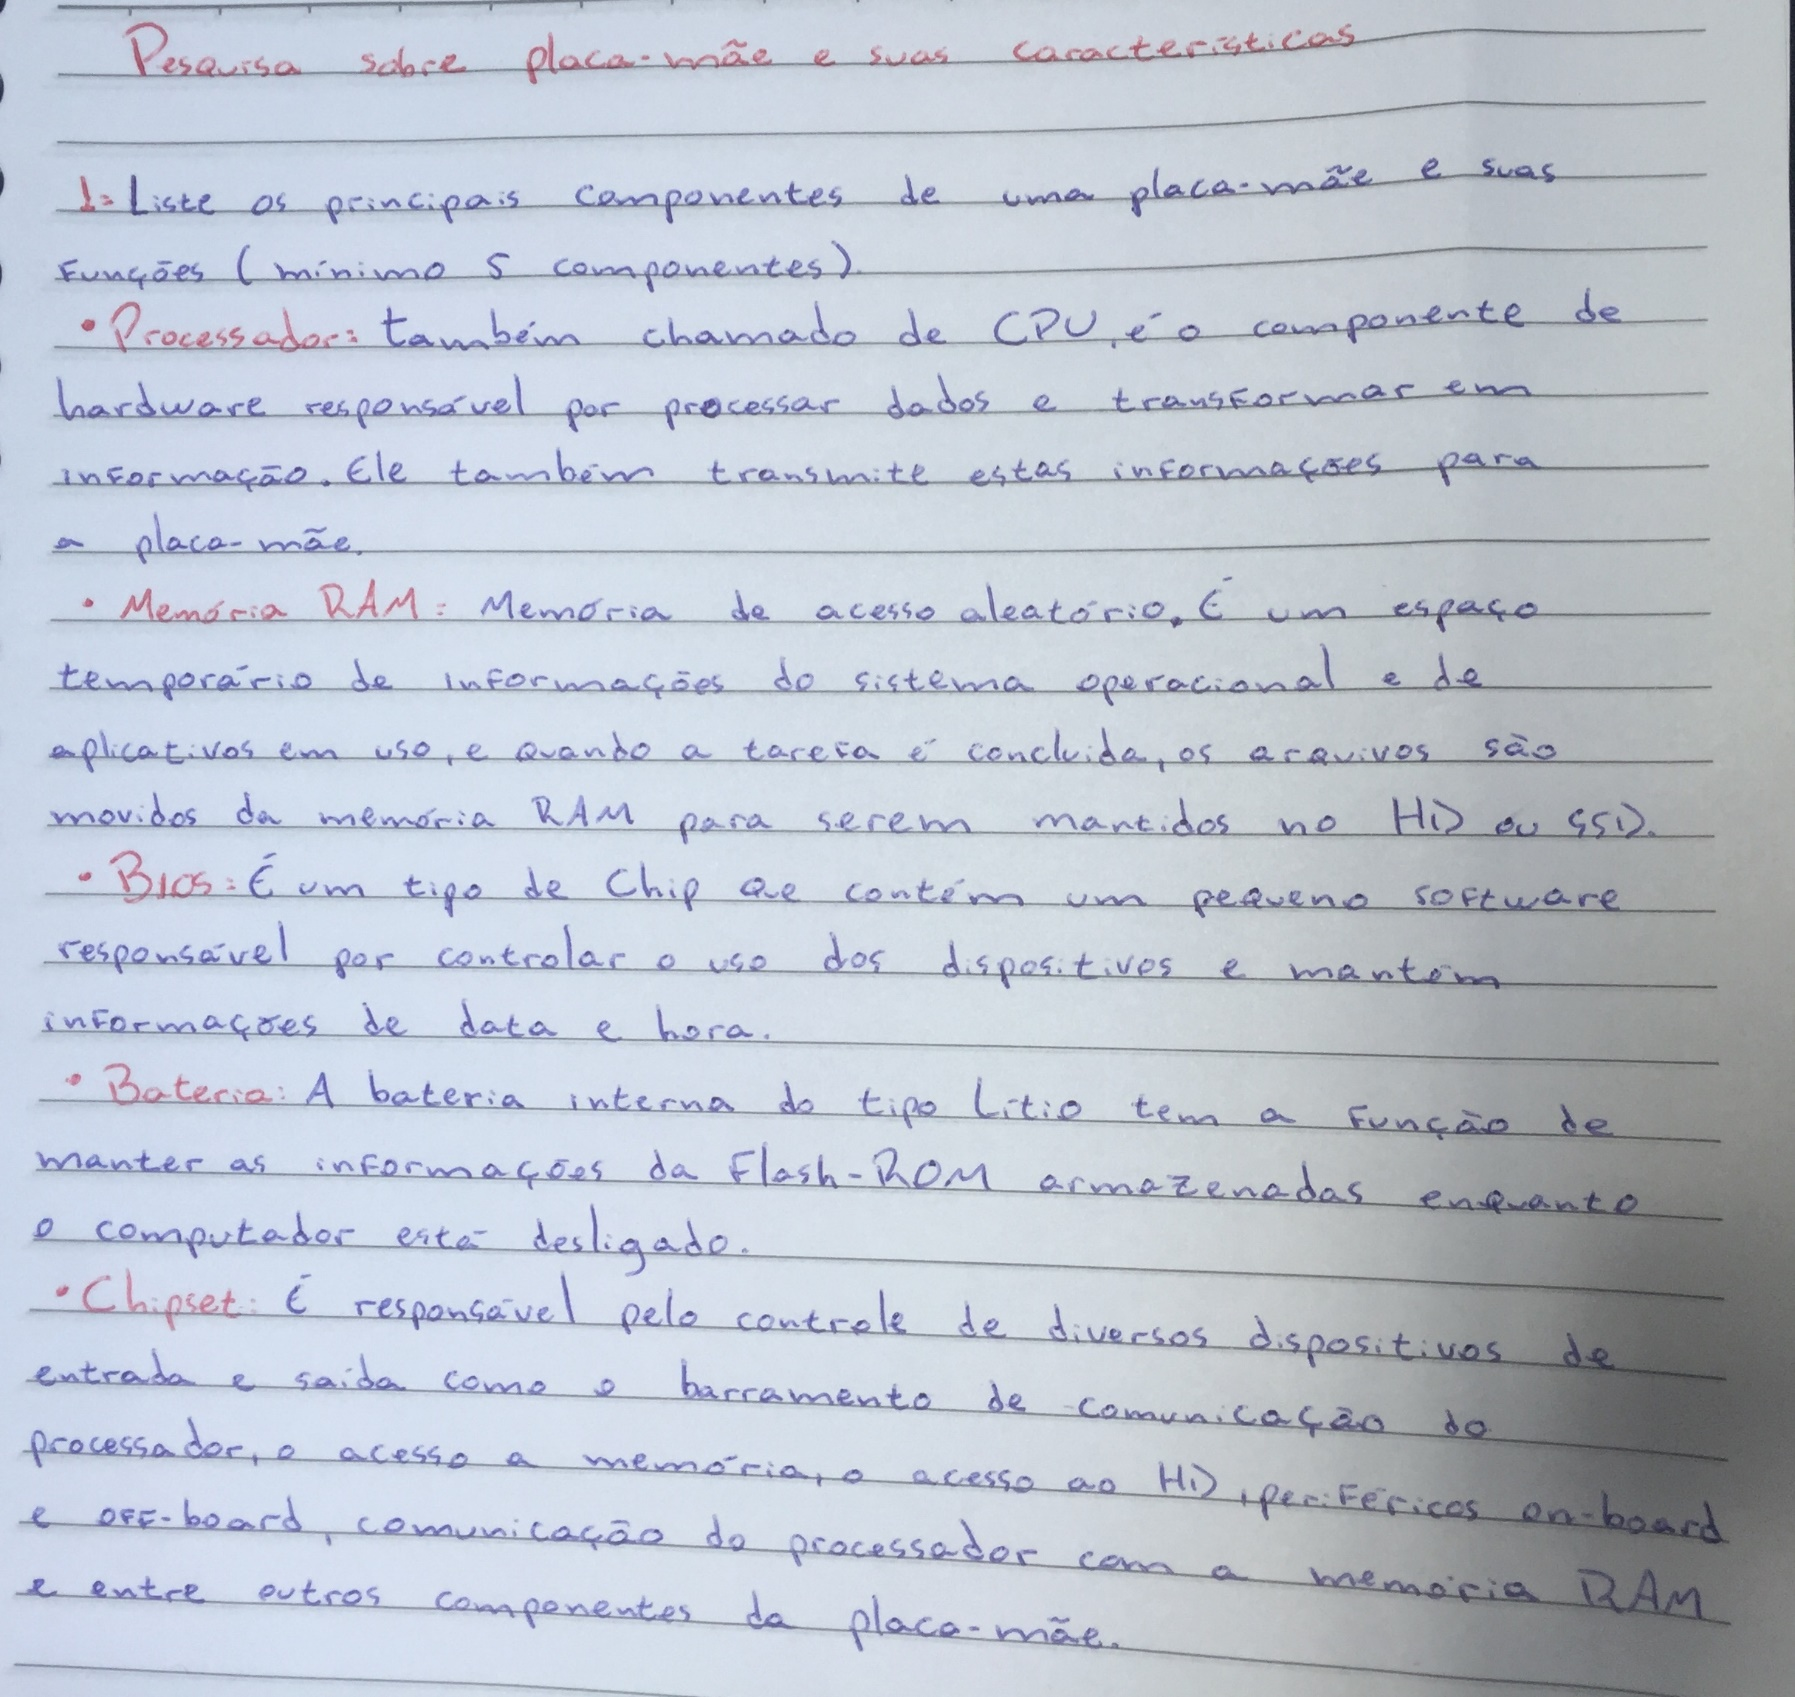 Pesquisa sobre placa-mãe e suas características
1- Liste os principais componentes de uma placa-mãe e suas
funções (mínimo 5 componentes).
• Processador: também chamado de CPU, é o componente de
hardware responsável por processar dados e transformar em
informação. Ele também transmite estas informações para
a placa-mãe.
• Memória RAM: Memória de acesso aleatório. É um espaço
temporário de informações do sistema operacional e de
aplicativos em uso, e quando a tarefa é concluida, os arquivos são
movidos da memória RAM para serem mantidos no HD ou SSD.
• Bios: É um tipo de Chip que contém um pequeno software
responsável por controlar o uso dos dispositivos e mantém
informações de data e hora.
• Bateria: A bateria interna do tipo Lítio tem a função de
manter as informações da Flash-ROM armazenadas enquanto
o computador está desligado.
• Chipset: É responsável pelo controle de diversos dispositivos de
entrada e saída como o barramento de comunicação do
processador, o acesso a memória, o acesso ao HD, periféricos on-board
e off-board, comunicação do processador com a memória RAM
e entre outros componentes da placa-mãe.